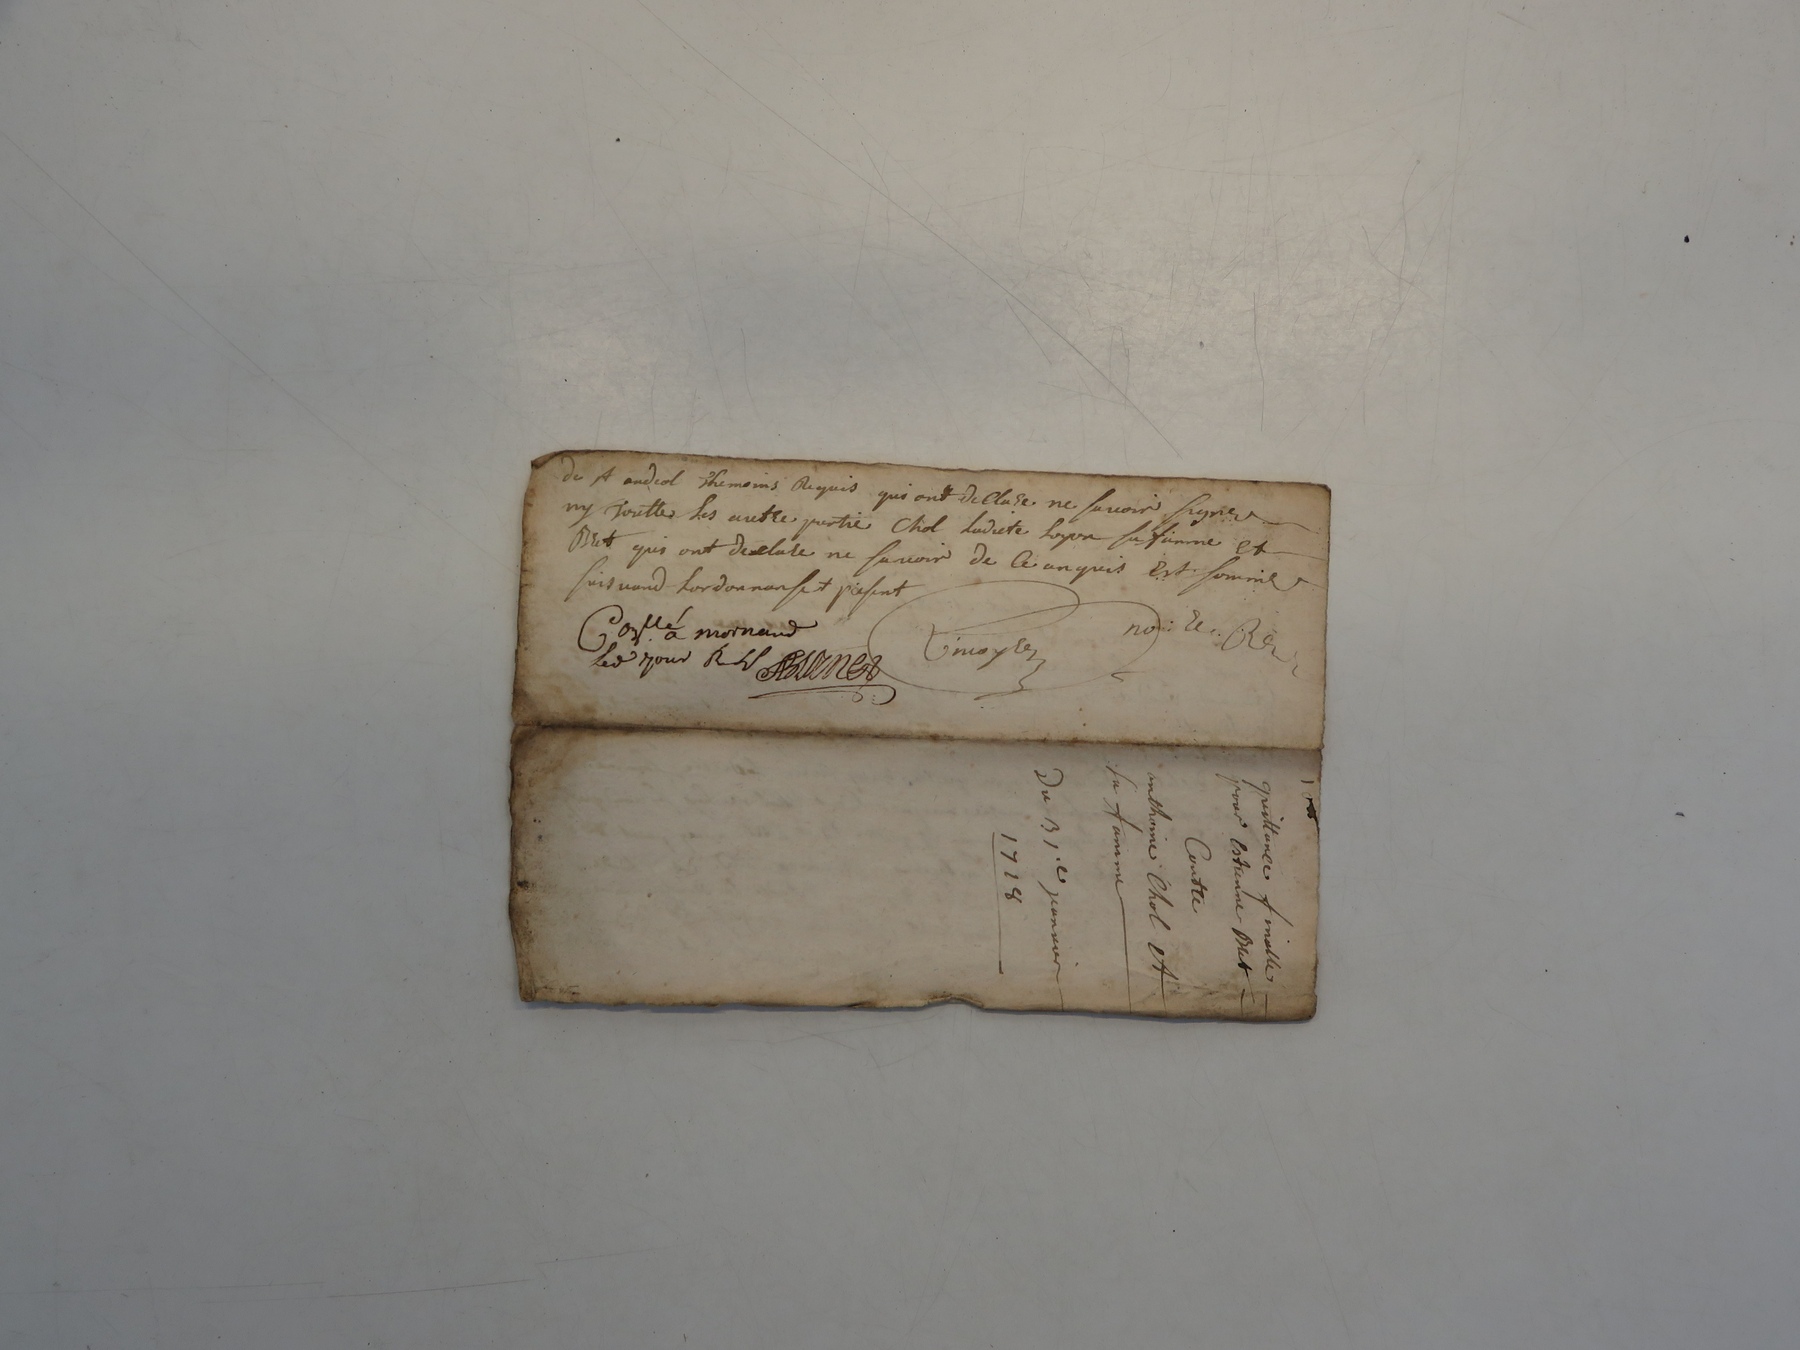 de St andeol themoins Requis qui ont declare ne savoir signer
ny toutte les autre partie Chol ladicte sa famme et
Bret qui ont declare ne savoir de ce anquis est sommé
suisvand lordonnanse et present
Conllé a mornand
led jour
no: Re
quittance finalle
pour Estienne Bret
Contre
anthoine Chol et
sa famme
Du janvier
1718